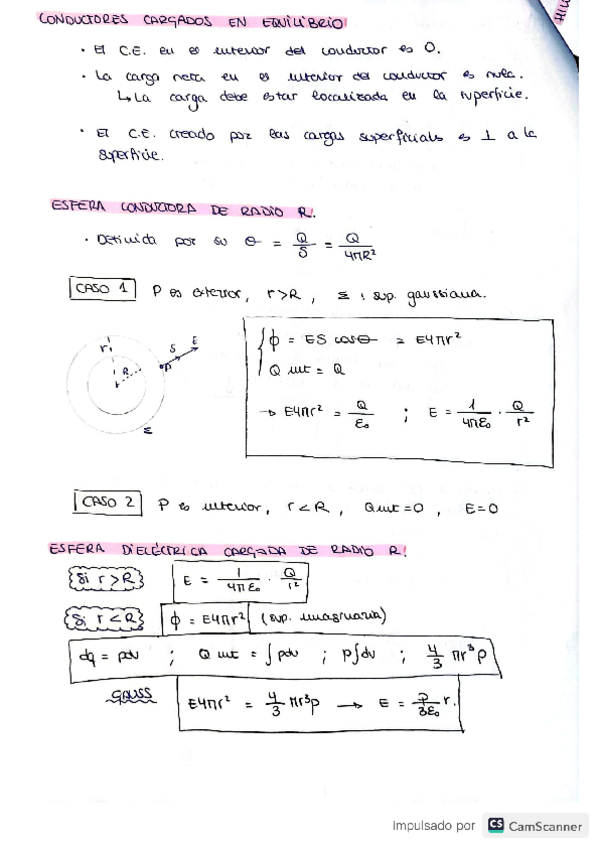 CONDUCTORES CARGADOS EN EQUILIBRIO
· El C.E. en el interior del conductor es 0.
· La carga neta en el interior del conductor es nula.
↳ La carga debe estar localizada en la superficie.
· El C.E. creado por las cargas superficials es ⊥ a la
superficie.
ESFERA CONDUCTORA DE RADIO R.
· Definida por su σ = Q/S = Q/4πR²
CASO 1 P es exterior, r>R, Σ: sup. gaussiana.
r R P S E Σ
ϕ = ES cosθ = E4πr²
Q int = Q
→ E4πr² = Q/ε₀ ; E = 1/4πε₀ · Q/r²
CASO 2 P es interior, r<R, Qint=0, E=0
ESFERA DIELÉCTRICA CARGADA DE RADIO R!
Si r>R E = 1/4πε₀ · Q/r²
Si r<R ϕ = E4πr² (sup. imaginaria)
dq = ρdv ; Q int = ∫ρdv ; ρ∫dv ; 4/3 πr³ρ
GAUSS E4πr² = 4/3 πr³ρ → E = ρ/3ε₀ r.
Impulsado por CS CamScanner